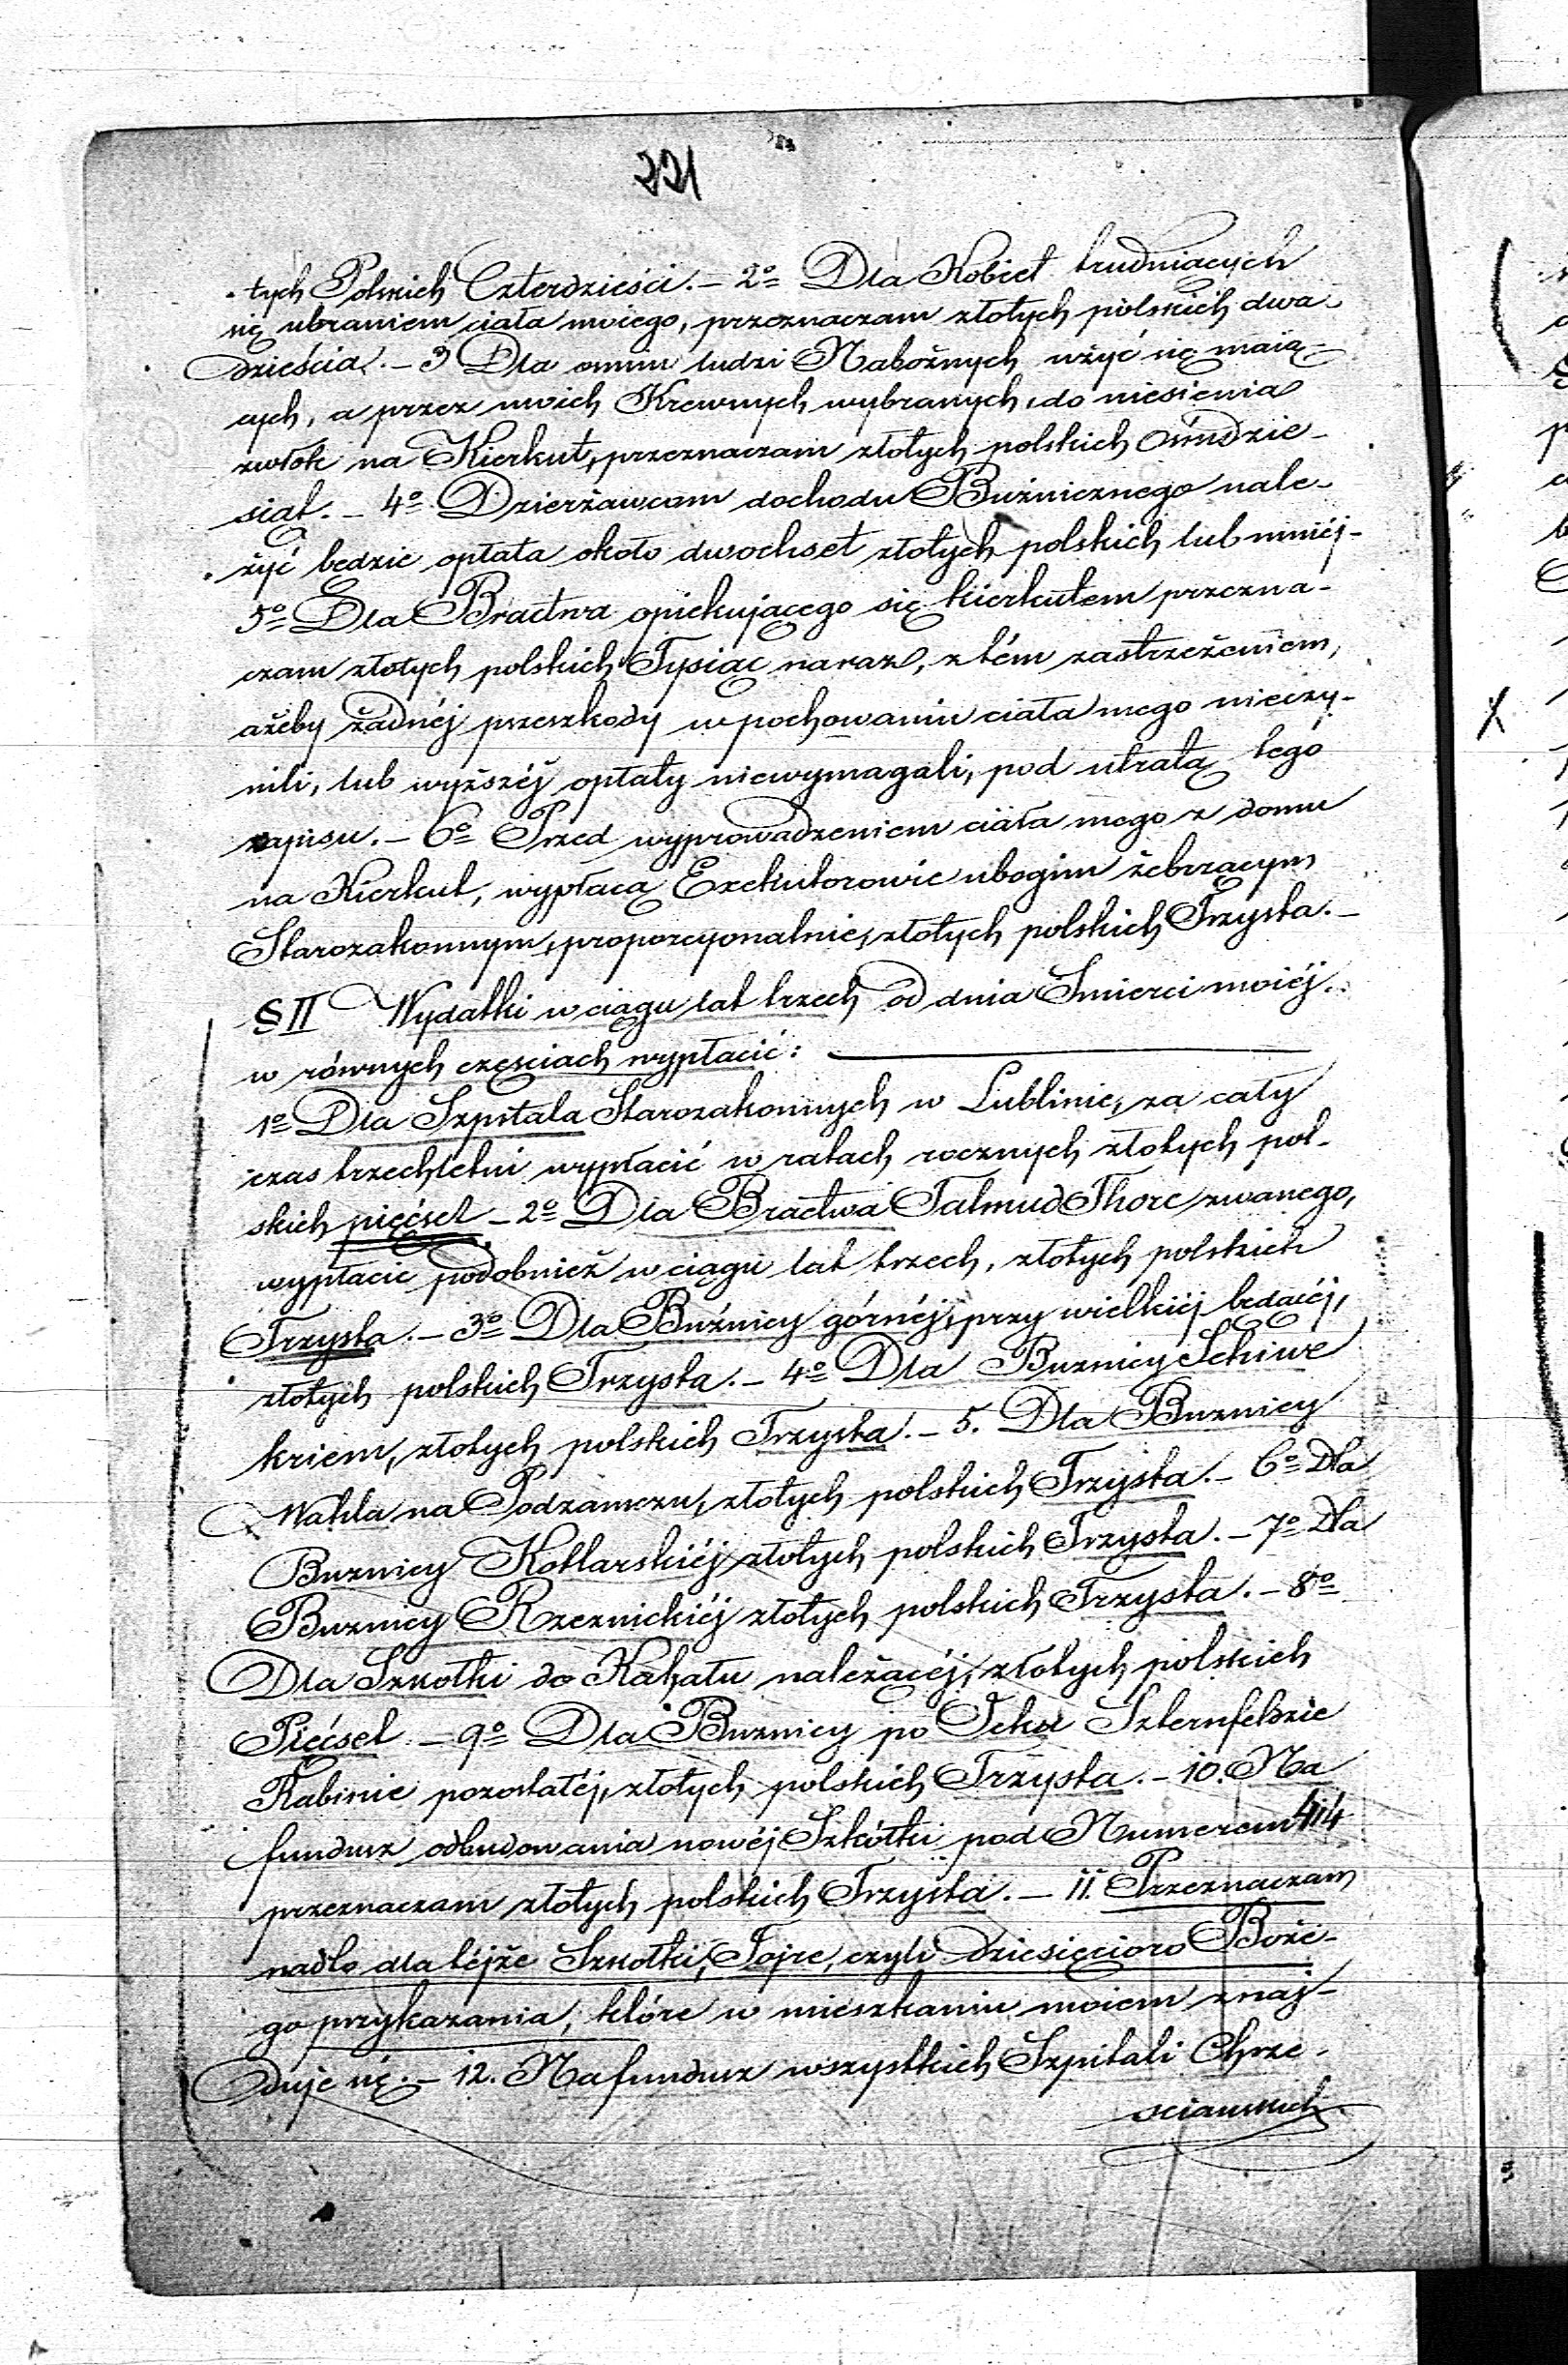 221
tych Polskich Czterdzieści. – 2º Dla Kobiet trudniących
się ubraniem ciała moiego, przeznaczam złotych polskich dwa-
dzieścia. – 3 Dla ośmiu ludzi Nabożnych użyć się maią-
cych, a przez moich Krewnych wybranych, do niesienia
zwłok na Kierkut, przeznaczam złotych polskich Ośmdzie-
siąt. – 4º Dzierżawcom dochodu Bużnicznego nale-
żyć będzie opłata około dwochset złotych polskich lub mniéj-
5º Dla Bractwa opiekującego się kierkutem przezna-
czam złotych polskich Tysiąc naraz, z tém zastrzeżeniem,
ażeby żadnéj przeszkody w pochowaniu ciała mego nieczy-
nili, lub wyższéj opłaty niewymagali, pod utratą tego
zapisu. – 6º Przed wyprowadzeniem ciała mego z domu
na Kierkut, wypłacą Exekutorowie ubogim żebrzącym
Starozakonnym, proporcyonalnie, złotych polskich Trzysta. –
§ II Wydatki w ciągu lat trzech od dnia Smierci moiéj.
w równych częsciach wypłacić:
1º Dla Szpitala Starozakonnych w Lublinie, za cały
czas trzechletni wypłacić w ratach rocznych złotych pol-
skich pięćset – 2º Dla Bractwa Talmud Thore zwanego,
wypłacic podobnież w ciągu lat trzech, złotych polskich
Trzysta. – 3º Dla Bużnicy górnéj, przy wielkiéj będącéj,
złotych polskich Trzysta. – 4º Dla Buznicy Schiwe
kriem, złotych polskich Trzysta. – 5. Dla Buznicy
Wahla na Podzamczu, złotych polskich Trzysta. – 6º Dla
Buznicy Kotlarskiéj złotych polskich Trzysta. – 7º Dla
Buznicy Rzeznickiéj złotych polskich Trzysta. – 8º
Dla Szkołki do Kahału należącéj, złotych polskich
Pięćset – 9º Dla Buznicy po Szternfeldzie
Rabinie pozostałéj, złotych polskich Trzysta. – 10. Na
fundusz odbudowania nowéj Szkółki pod Numerem 414
przeznaczam złotych polskich Trzysta. – 11. Przeznaczam
nadto dla téjże Szkołki, Tojre, czyli dziesięcioro Boże-
go przykazania, które w mieszkaniu moiem znaj-
duje się. – 12. Na fundusz wszystkich Szpitali Chrze-
scianskich
X